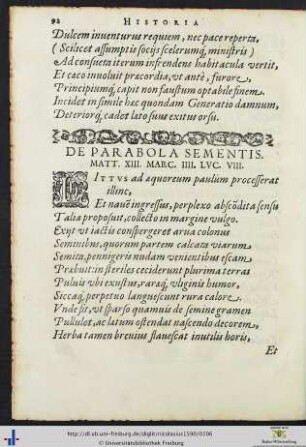 92 HISTORIA
Dulcem inuenturus requiem, nec pace reperta,
(Scilicet assumptis socijs scelerumq́; ministris)
Ad consueta iterum infrendens habitacula vertit,
Et caco inuoluit præcordia, vt antè, furore,
Principiumq́; capit non faustum optabile finem.
Incidet in simile hæc quondam Generatio damnum,
Deteriorq́; cadet lato suus exitus orsu.
DE PARABOLA SEMENTIS.
MATT. XIII. MARC. IIII. LVC. VIII.
ITTVS ad aquoreum paulùm processerat
illinc,
Et nauẽ ingressus, perplexo abscõdita sensu
Talia proposuit, collecto in margine vulgo.
Exijt vt iactis conspergeret arua colonus
Seminibus, quorum partem calcata viarum
Semita, pennigeris nudam venientibus escam
Præbuit: in steriles ceciderunt plurima terras
Puluis vbi exustus, raraq́; vliginis humor,
Siccaq́; perpetuo languescunt rura calore.
Vnde sit, vt sparso quamuis de semine gramen
Pullulet, ac latum ostendat nascendo decorem,
Herba tamen breuius flauescat inutilis horis,
Et
http://dl.ub.uni-freiburg.de/diglit/nicolausius1590/0106
© Universitätsbibliothek Freiburg
Baden-Württemberg